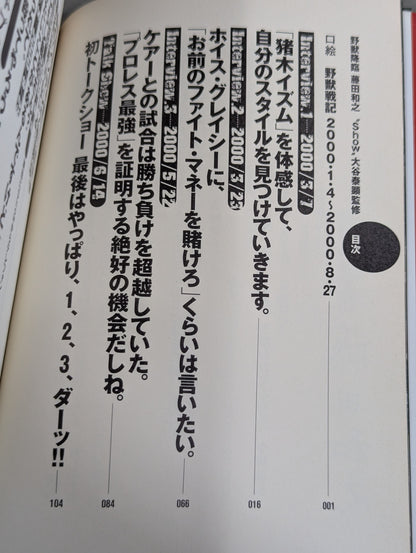 野獣降臨 藤田和之 "Show"大谷泰顕監修
目次
口絵 野獣戦記 2000・1・4〜2000・8・27 001
Interview.1―2000/3/1
「猪木イズム」を体感して、
自分のスタイルを見つけていきます。 016
Interview.2―2000/3/23
ホイス・グレイシーに、
「お前のファイト・マネーを賭けろ」くらいは言いたい。 066
Interview.3―2000/5/22
ケアーとの試合は勝ち負けを超越していた。
「プロレス最強」を証明する絶好の機会だしね。 084
Talk Show―2000/6/14
初トーク・ショー 最後はやっぱり、1、2、3、ダーッ!! 104